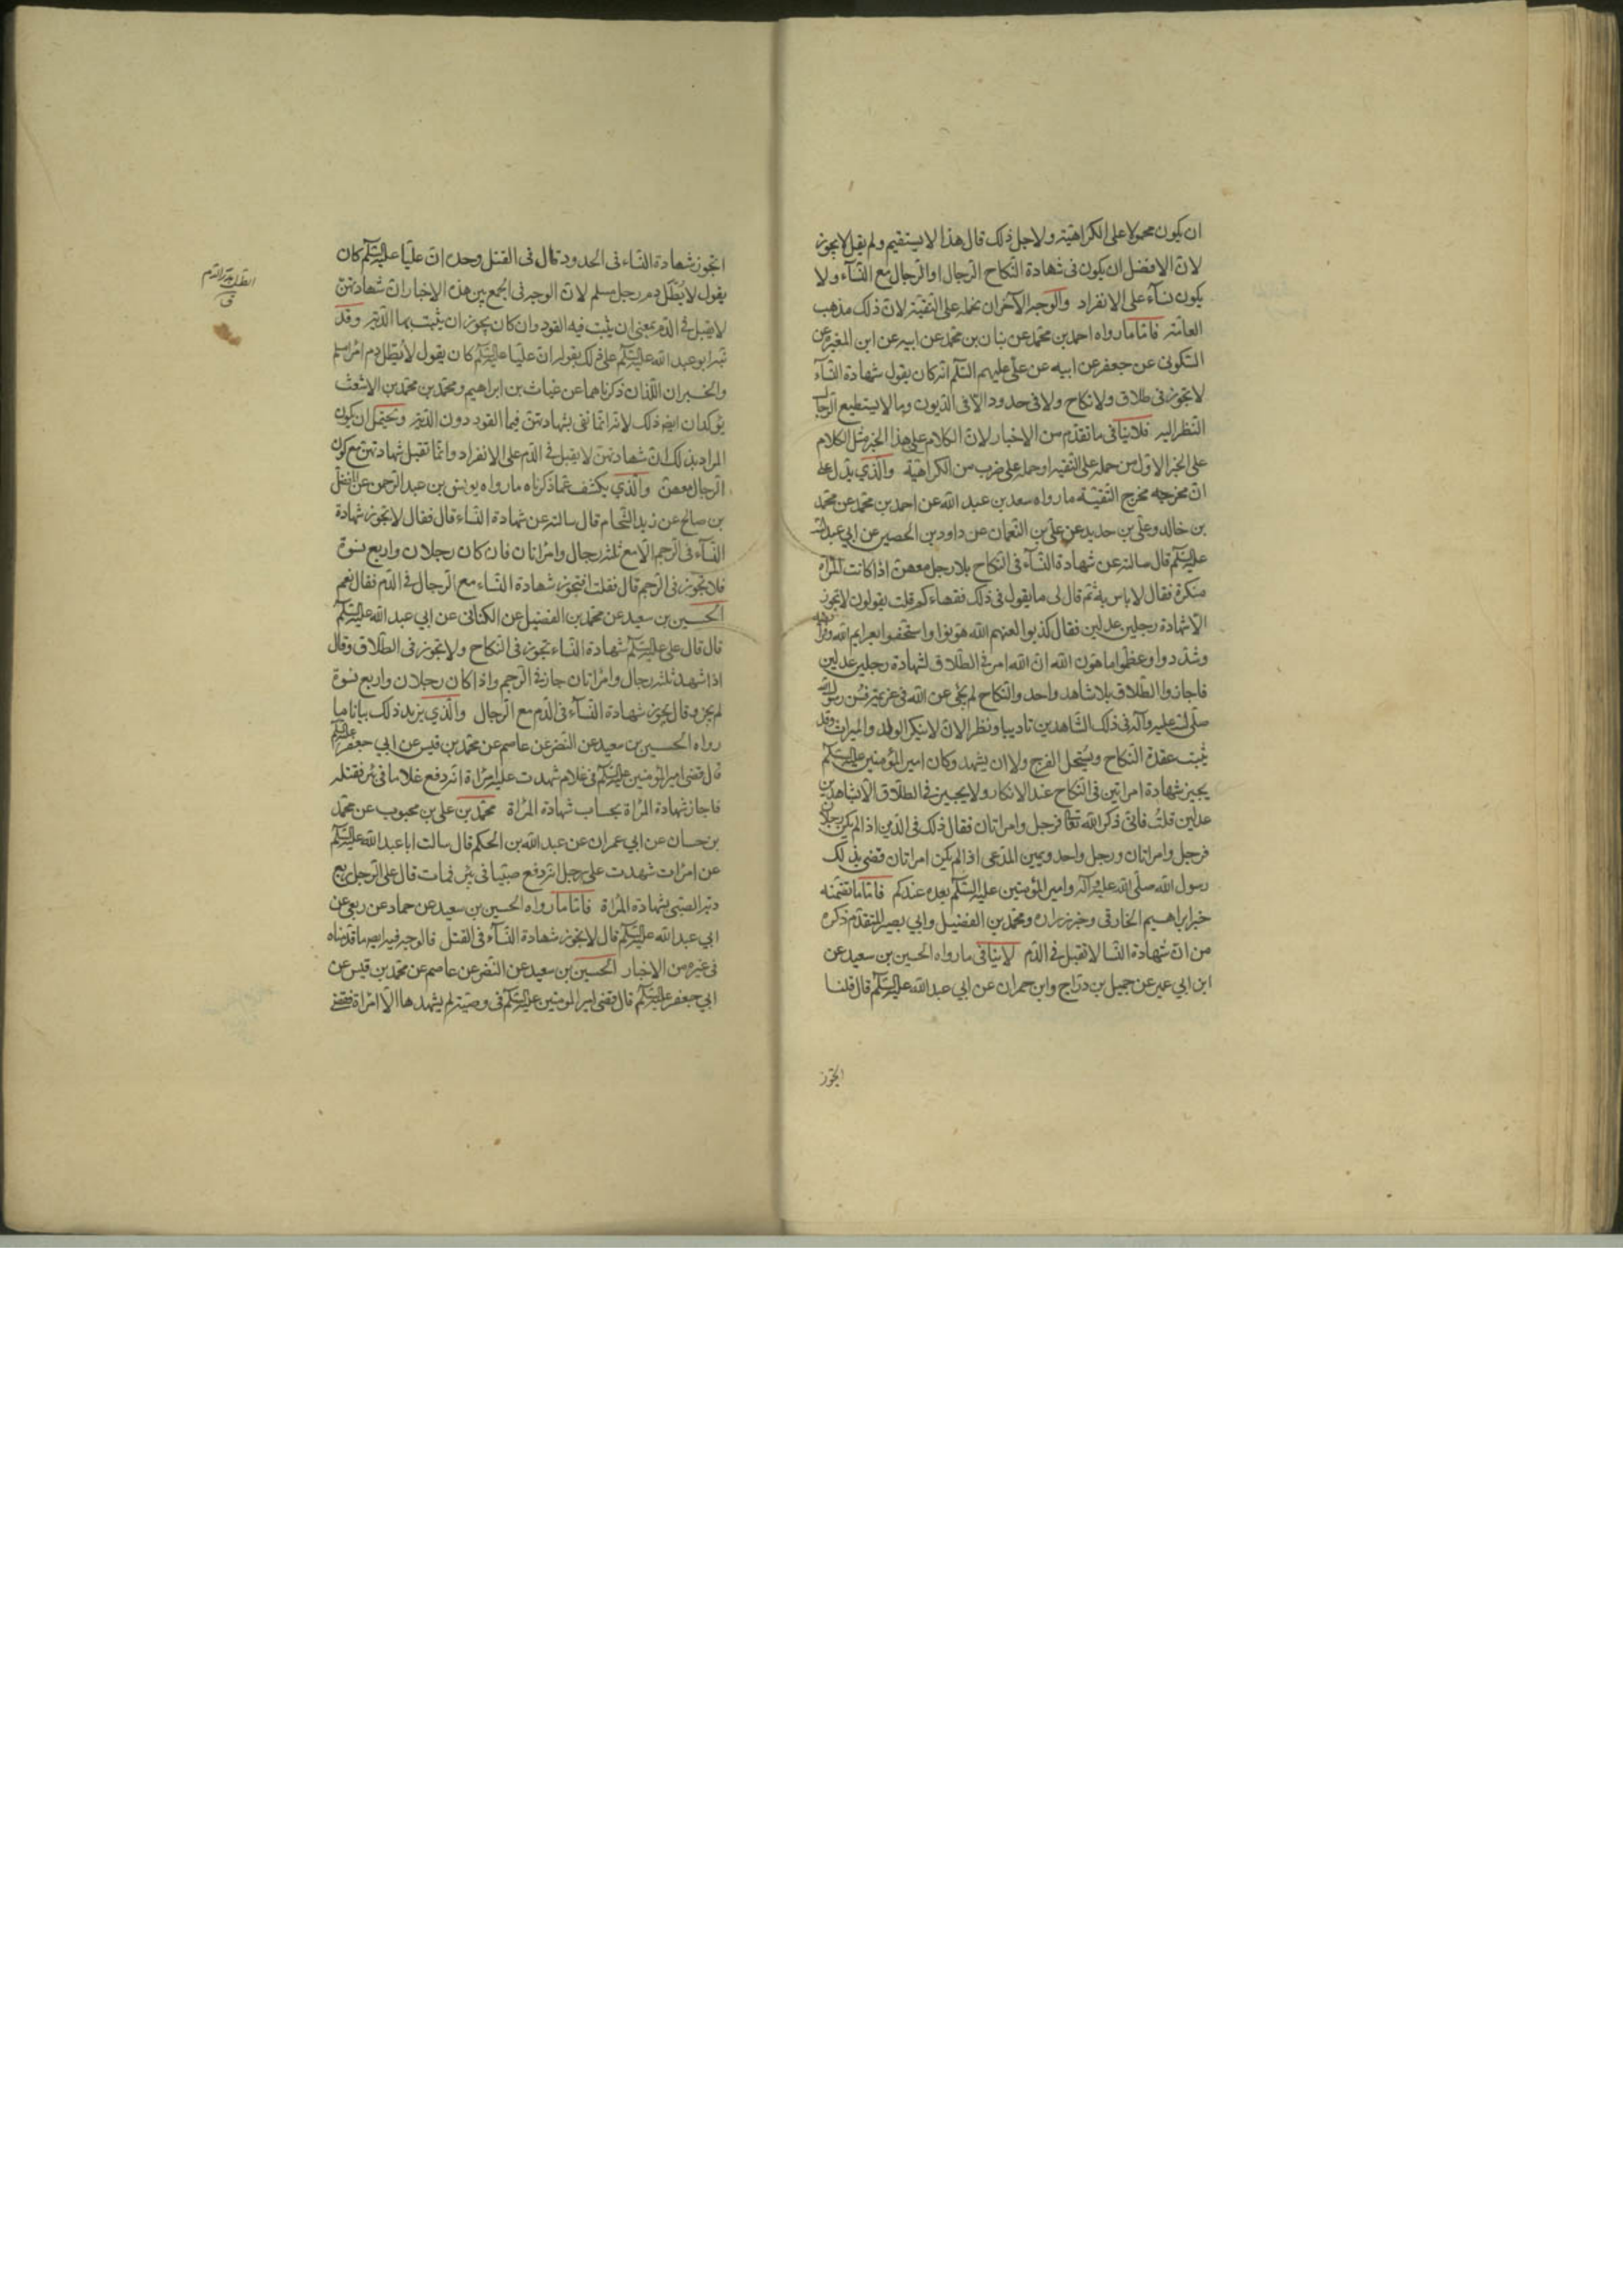 ان يكون محمولا على الكراهية ولاجل ذلك قال هذا لا يستقيم ولم يقل لا يجوز
لان الافضل ان يكون في شهادة النكاح الرجال او الرجال مع النساء ولا
يكون نساء على الانفراد والوجه الآخر ان نحمله على التقية لان ذلك مذهب
العامة فاما ما رواه احمد بن محمد عن بنان بن محمد عن ابيه عن ابن المغيرة عن
السكوني عن جعفر عن ابيه عن علي عليهم السلم انه كان يقول شهادة النساء
لا تجوز في طلاق ولا نكاح ولا في حدود الا في الديون وما لا يستطيع الرجال
النظر اليه فلا ينافي ما تقدم من الاخبار لان الكلام على هذا الخبر مثل الكلام
على الخبر الاول من حمله على التقية او حمله على ضرب من الكراهية والذي يدل على
ان مخرجه مخرج التقية ما رواه سعد بن عبد الله عن احمد بن محمد عن محمد
بن خالد وعلي بن حديد عن علي بن النعمان عن داود بن الحصين عن ابي عبد الله
عليه السلم قال سالته عن شهادة النساء في النكاح بلا رجل معهن اذا كانت المراة
منكرة فقال لا باس به ثم قال لي ما يقول في ذلك فقهاءكم قلت يقولون لا تجوز
الا شهادة رجلين عدلين فقال كذبوا لعنهم الله هونوا واستخفوا بعزايم الله وفرايضه
وشددوا وعظموا ما هون الله ان الله امر في الطلاق بشهادة رجلين عدلين
فاجازوا الطلاق بلا شاهد واحد والنكاح لم يجئ عن الله في عزيمة فسن رسول الله
صلى الله عليه وآله في ذلك الشاهدين تاديبا ونظرا لان لا ينكر الولد والميراث وقد
ثبت عقدة النكاح ويستحل الفرج ولا ان يشهد وكان امير المؤمنين عليه السلم
يجيز شهادة امراتين في النكاح عند الانكار ولا يجيز في الطلاق الا شاهدين
عدلين قلت فانى ذكر الله تعالى فرجل وامراتان فقال ذلك في الدين اذا لم يكن رجلان
فرجل وامراتان ورجل واحد ويمين المدعي اذا لم يكن امراتان قضى بذلك
رسول الله صلى الله عليه وآله وامير المؤمنين عليه السلم بعده عندكم فاما ما تضمنه
خبر ابراهيم الخارقي وخبر زرارة ومحمد بن الفضيل وابي بصير المتقدم ذكره
من ان شهادة النسا لا تقبل في الدم لا ينافي ما رواه الحسين بن سعيد عن
ابن ابي عمير عن جميل بن دراج وابن حمران عن ابي عبد الله عليه السلم قال قلنا
اتجوز
اتجوز شهادة النساء في الحدود قال في القتل وحده ان عليا عليه السلم كان
يقول لا يطل دم رجل مسلم لان الوجه في الجمع بين هذه الاخبار ان شهادتهن
لا يقبل في الدم بمعنى ان يثبت فيه القود وان كان يجوز ان يثبت بها الدية وقد
نبه ابو عبد الله عليه السلم على ذلك بقوله ان عليا عليه السلم كان يقول لا يطل دم امرا مسلم
والخبران اللذان ذكرناهما عن غياث بن ابراهيم ومحمد بن محمد بن الاشعث
يؤكدان ايضا ذلك لانه انما نفى بشهادتهن فيها القود دون الدية ويحتمل ان يكون
المراد بذلك ان شهادتهن لا يقبل في الدم على الانفراد وانما تقبل شهادتهن مع كون
الرجال معهن والذي يكشف عما ذكرناه ما رواه يونس بن عبد الرحمن عن المفضل
بن صالح عن زيد الشحام قال سالته عن شهادة النساء قال فقال لا تجوز شهادة
النساء في الرجم الا مع ثلثه رجال وامراتان فان كان رجلان واربع نسوة
فلا تجوز في الرجم قال فقلت افتجوز شهادة النساء مع الرجال في الدم فقال نعم
الحسين بن سعيد عن محمد بن الفضيل عن الكناني عن ابي عبد الله عليه السلم
قال قال علي عليه السلم شهادة النساء تجوز في النكاح ولا تجوز في الطلاق وقال
اذا شهد ثلثه رجال وامراتان جاز في الرجم واذا كان رجلان واربع نسوة
لم يجز وقال يجوز شهادة النساء في الدم مع الرجال والذي يزيد ذلك بيانا ما
رواه الحسين بن سعيد عن النضر عن عاصم عن محمد بن قيس عن ابي جعفر عليه السلم
قال قضى امير المؤمنين عليه السلم في غلام شهدت عليه امراة انه دفع غلاما في بئر فقتله
فاجاز شهادة المراة بحساب شهادة المراة محمد بن علي بن محبوب عن محمد
بن حسان عن ابي عمران عن عبد الله بن الحكم قال سالت ابا عبد الله عليه السلم
عن امرات شهدت على رجل انه دفع صبيا في بئر فمات قال على الرجل ربع
دية الصبي بشهادة المراة فاما ما رواه الحسين بن سعيد عن حماد عن ربعي عن
ابي عبد الله عليه السلم قال لا تجوز شهادة النساء في القتل فالوجه فيه ايضا ما قدمناه
في غيره من الاخبار الحسين بن سعيد عن النضر عن عاصم عن محمد بن قيس عن
ابي جعفر عليه السلم قال قضى امير المومنين عليه السلم في وصية لم يشهدها الا امراة فقضى
الطل هدر الدم
ق